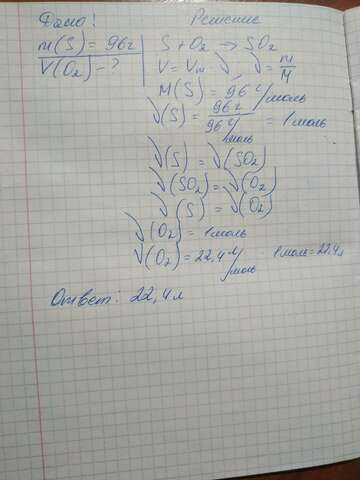 Дано: Решение
m(S) = 96г S + O₂ → SO₂
V(O₂) - ? V = Vm · ν ν = m/M
M(S) = 96 г/моль
ν(S) = 96г / 96 г/моль = 1 моль
ν(S) = ν(SO₂)
ν(SO₂) = ν(O₂)
ν(S) = ν(O₂)
ν(O₂) = 1 моль
ν(O₂) = 22,4 л/моль 1 моль = 22,4л
Ответ: 22,4 л